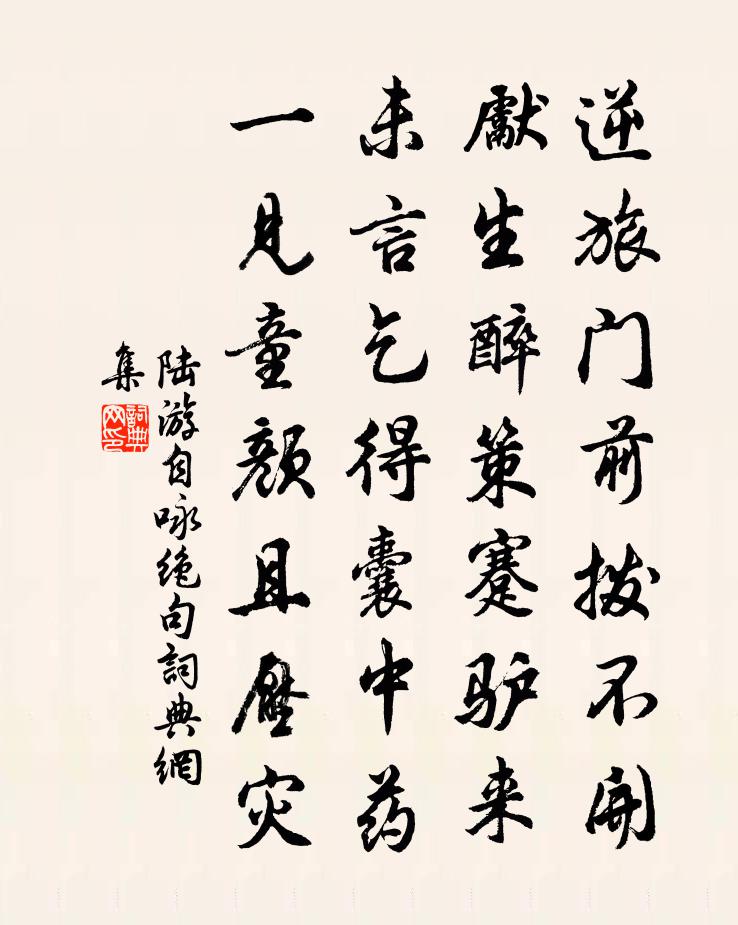 逆旅门前拨不开
獻生醉策蹇驴来
未言乞得囊中药
一见童颜且压灾
陆游自咏绝句詞典網
集
詞典网印